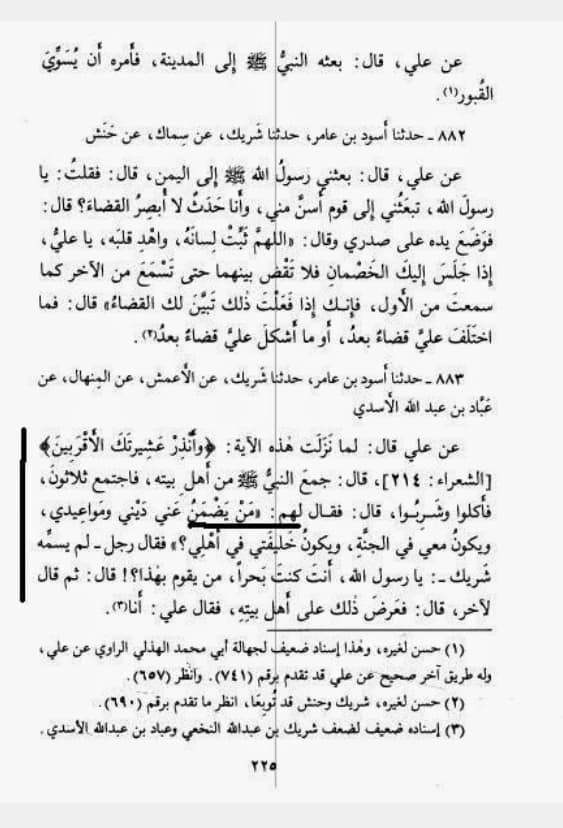 عن علي، قال: بعثه النبيُّ ﷺ إلى المدينة، فأَمره أَن يُسَوِّيَ
القُبور(١).
٨٨٢ ـ حدثنا أَسود بن عامر، حدثنا شَريك، عن سِماك، عن حَنَش
عن علي، قال: بعثني رسولُ الله ﷺ إِلى اليمن، قال: فقلتُ: يا
رسولَ الله، تبعَثُني إِلى قوم أَسنَّ مني، وأَنا حَدَثٌ لا أُبصِرُ القضاءَ؟ قال:
فوَضَعَ يده على صدري وقال: «اللهمَّ ثَبِّتْ لِسانَهُ، واهْدِ قلبَه، يا عليُّ،
إِذا جَلَسَ إِليكَ الخَصْمانِ فلا تَقْضِ بينهما حتى تَسْمَعَ من الآخر كما
سمعتَ من الأَول، فإِنك إِذا فَعَلْتَ ذٰلك تَبَيَّنَ لك القضاءُ» قال: فما
اختَلَفَ عليَّ قضاءٌ بعدُ، أَو ما أَشكَلَ عليَّ قضاءٌ بعدُ(٢).
٨٨٣ ـ حدثنا أَسود بن عامر، حدثنا شَريك، عن الأَعمش، عن المِنهال، عن
عَبَّاد بن عبد الله الأَسدي
عن علي قال: لما نَزَلَت هٰذه الآية: ﴿وأَنْذِرْ عَشِيرتَكَ الأَقْرَبِينَ﴾
[الشعراء: ٢١٤]، قال: جمعَ النبيُّ ﷺ من أَهلِ بيته، فاجتمع ثلاثونَ،
فأَكلوا وشَرِبُوا، قال: فقال لهم: «مَنْ يَضْمَنُ عَني دَيْني ومَواعِيدي،
ويكونُ معي في الجنَّةِ، ويكونُ خَليفَتي في أَهْلي؟» فقال رجل ـ لم يسمِّه
شَريك ـ: يا رسول الله، أَنتَ كنتَ بَحراً، من يقوم بهٰذا؟! قال: ثم قال
لآخر، قال: فعَرضَ ذٰلك على أَهل بيتِهِ، فقال علي: أَنا(٣).
(١) حسن لغيره، وهٰذا إسناد ضعيف لجهالة أبي محمد الهذلي الراوي عن علي،
وله طريق آخر صحيح عن علي قد تقدم برقم (٧٤١). وانظر (٦٥٧).
(٢) حسن لغيره، شريك وحنش قد تُوبِعَا، انظر ما تقدم برقم (٦٩٠).
(٣) إسناده ضعيف لضعف شريك بن عبدالله النخعي وعباد بن عبدالله الأسدي.
٢٢٥